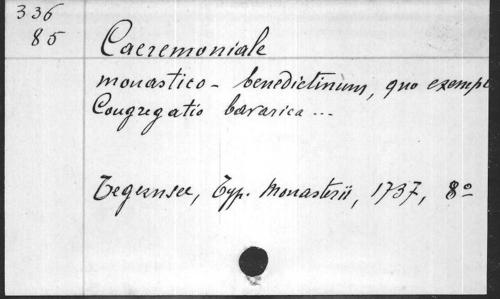 336
85
Caeremoniale
monastico - benedictinum, quo exempt
Congregatio bavarica ...
Tegernsee, Typ. Monasterii, 1737, 8º